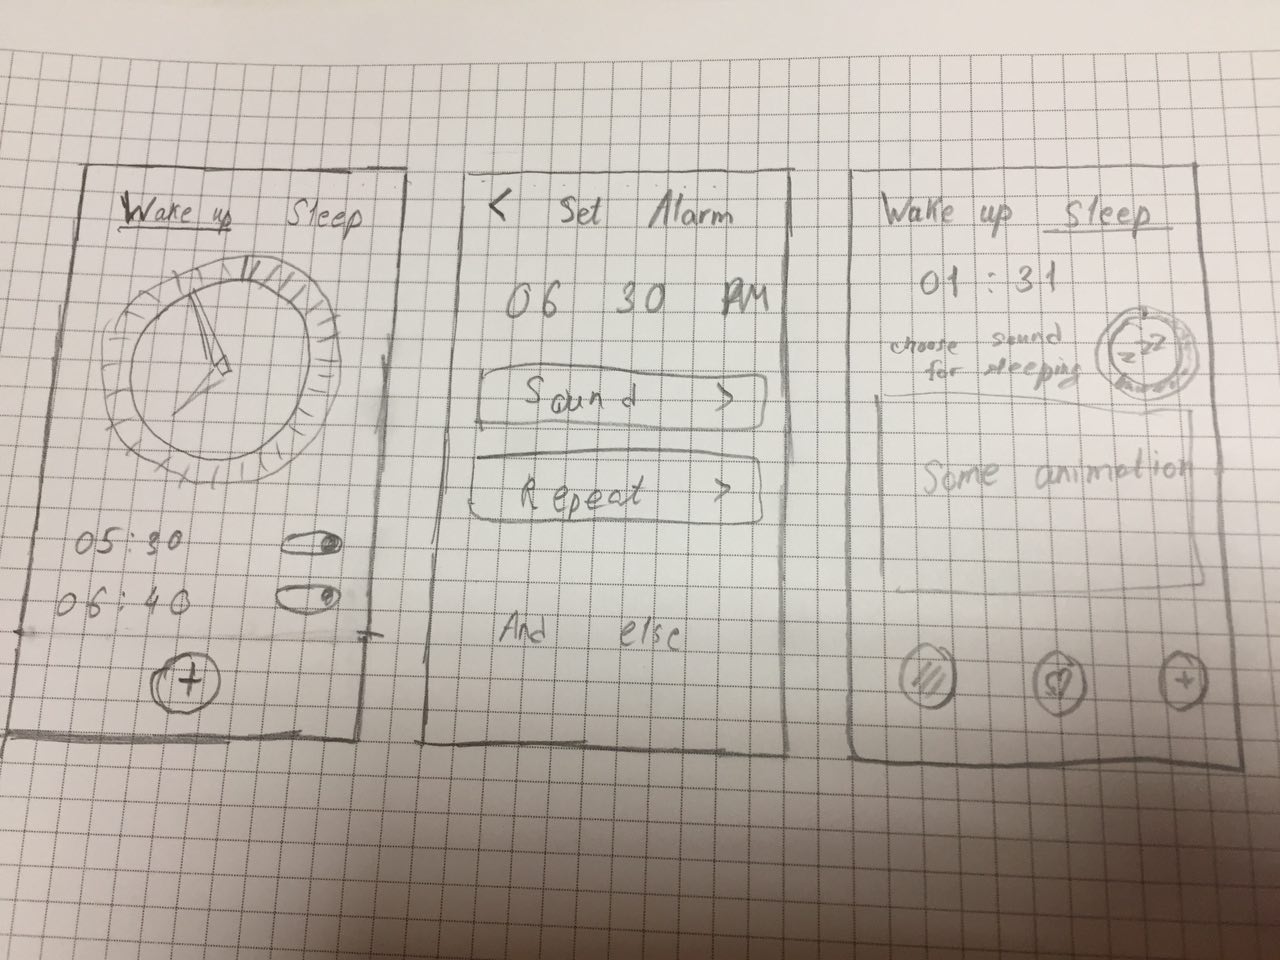 Wake up Sleep
05:30
06:40
+
< Set Alarm
06 30 PM
Sound >
Repeat >
And else
Wake up Sleep
01:31
choose sound
for sleeping
zzz
Some animation
+